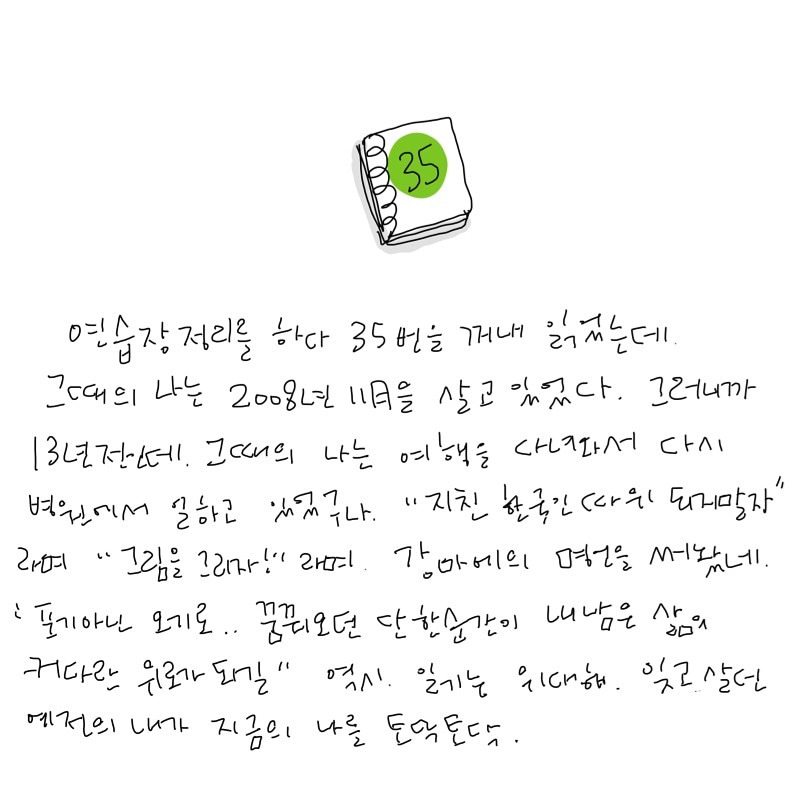 35
연습장 정리를 하다 35번을 꺼내 읽었는데.
그때의 나는 2008년 11月을 살고 있었다. 그러니까
13년전인데. 그때의 나는 여행을 다녀와서 다시
병원에서 일하고 있었구나. "지친 한국인 따위 되지말자"
라며 "그림을 그리자!" 라며. 강마에의 명언을 써놨네.
"포기아닌 오기로.. 꿈꿔오던 단 한순간이 내 남은 삶의
커다란 위로가 되길" 역시. 일기는 위대해. 잊고 살던
예전의 내가 지금의 나를 토닥토닥.